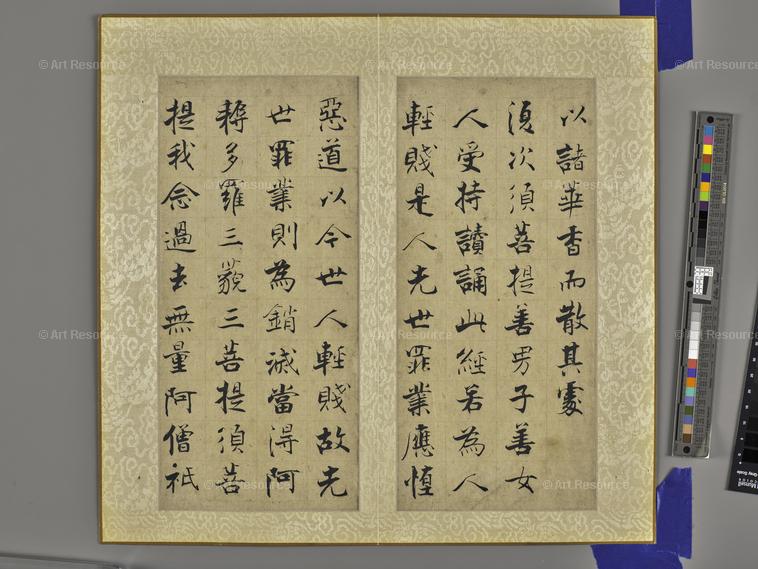 以諸華香而散其處
復次須菩提善男子善女
人受持讀誦此經若為人
輕賤是人先世罪業應墮
惡道以今世人輕賤故先
世罪業則為銷滅當得阿
耨多羅三藐三菩提須菩
提我念過去無量阿僧祇
© Art Resource